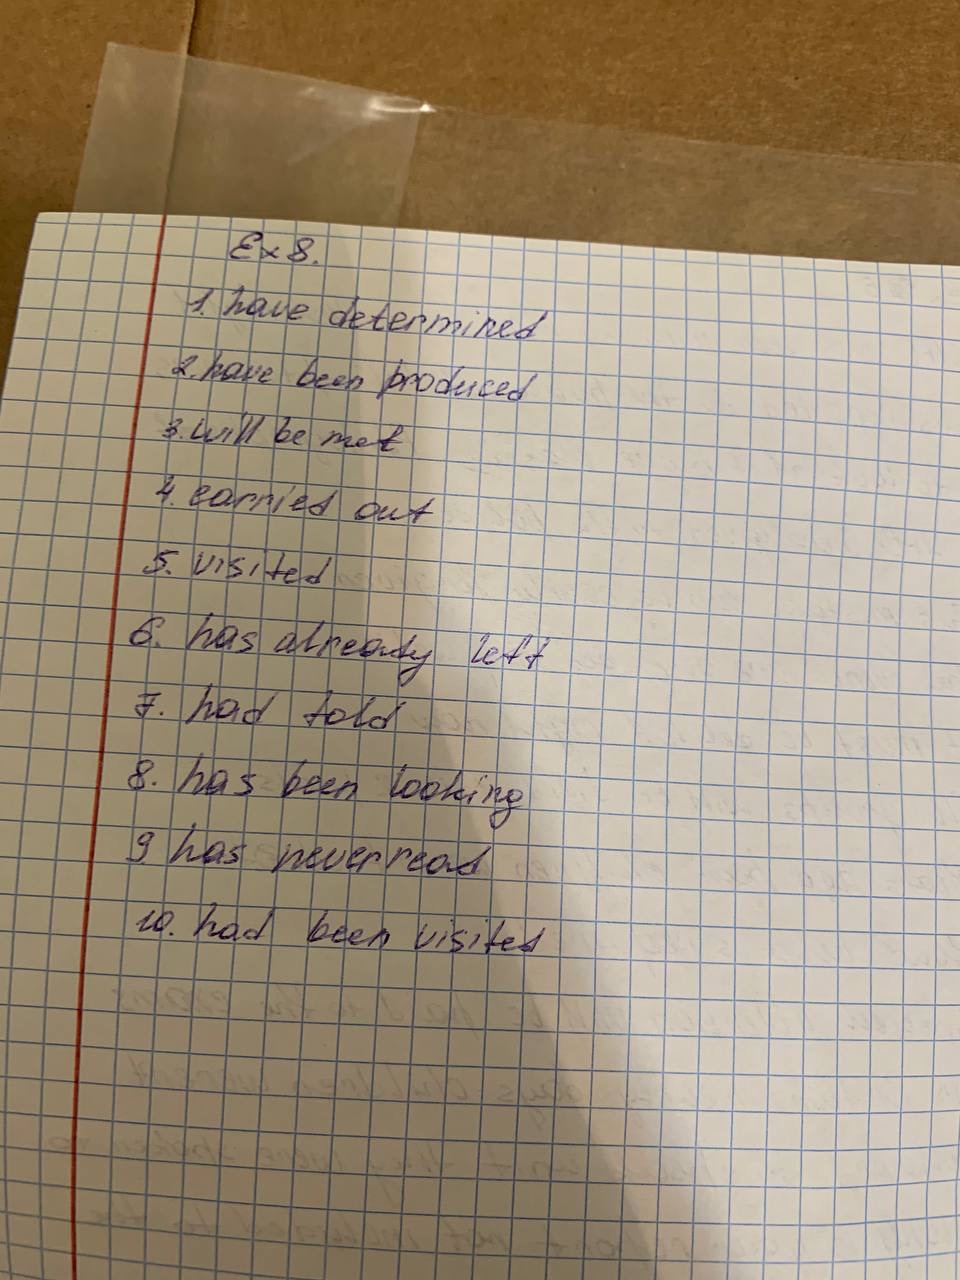 Ex 8.
1. have determined
2. have been produced
3. will be met
4. carried out
5. visited
6. has already left
7. had told
8. has been looking
9 has never read
10. had been visited